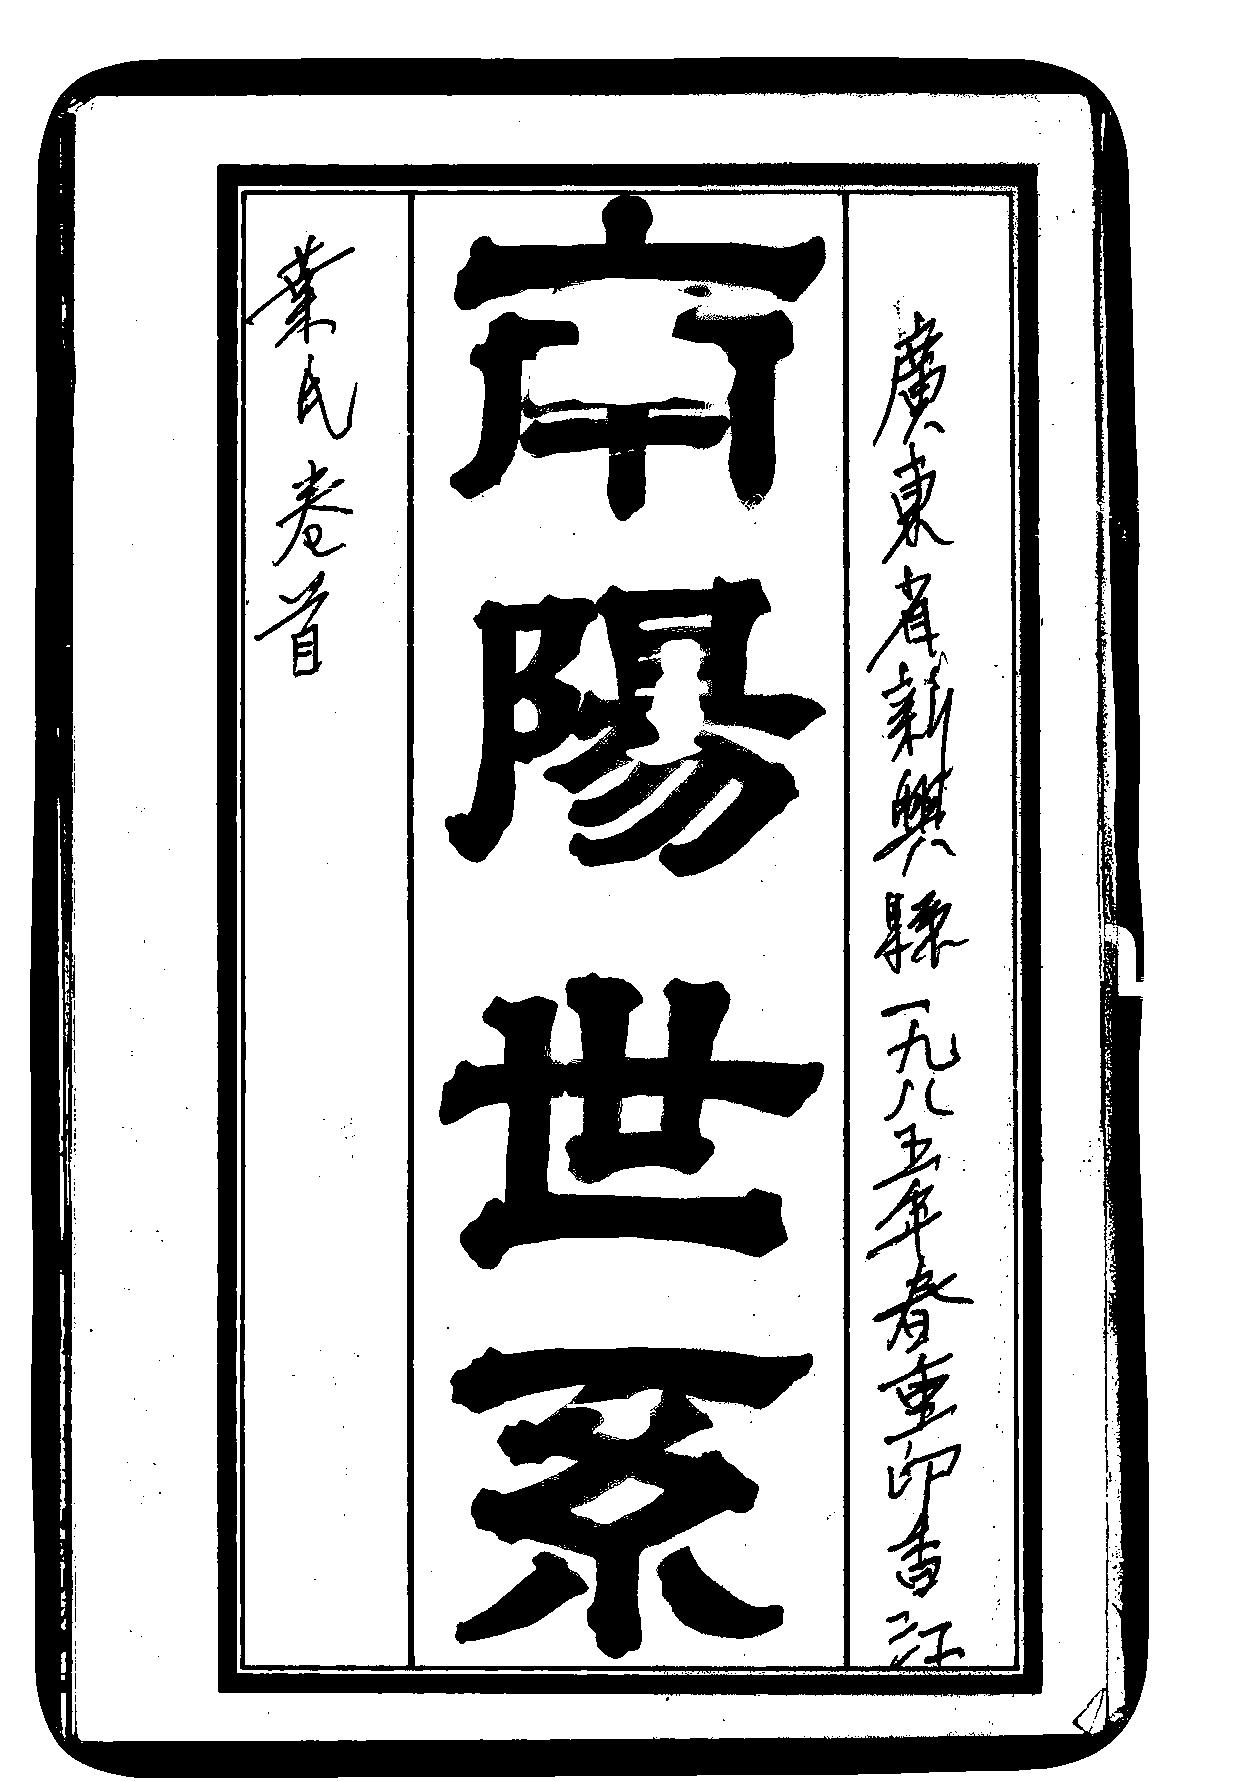 廣東省新興縣一九八五年春重印書
南陽世系
葉氏卷首